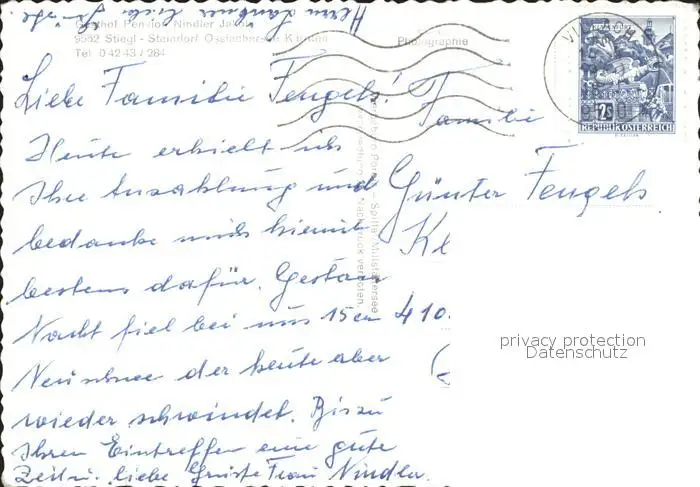 Herrn
Gasthof Pension Nindler Jakob
9552 Stiegl - Steindorf Ossiachersee Kärnten
Tel 04243/284
Photographie
VILLACH
2s
REPUBLIK ÖSTERREICH
Liebe Familie Fengels!
Heute erhielt ich
Ihre Anzahlung und
bedanke mich hiemit
bestens dafür. Gestern
Nacht fiel bei uns 15 cm
Neuschnee der heute aber
wieder schwindet. Bis zu
Ihren Eintreffen eine gute
Zeit u. liebe Grüsse Frau Nindler.
Familie
Günter Fengels
Kl
410.
Spittal Millstättersee
Nachdruck verboten.
privacy protection
Datenschutz